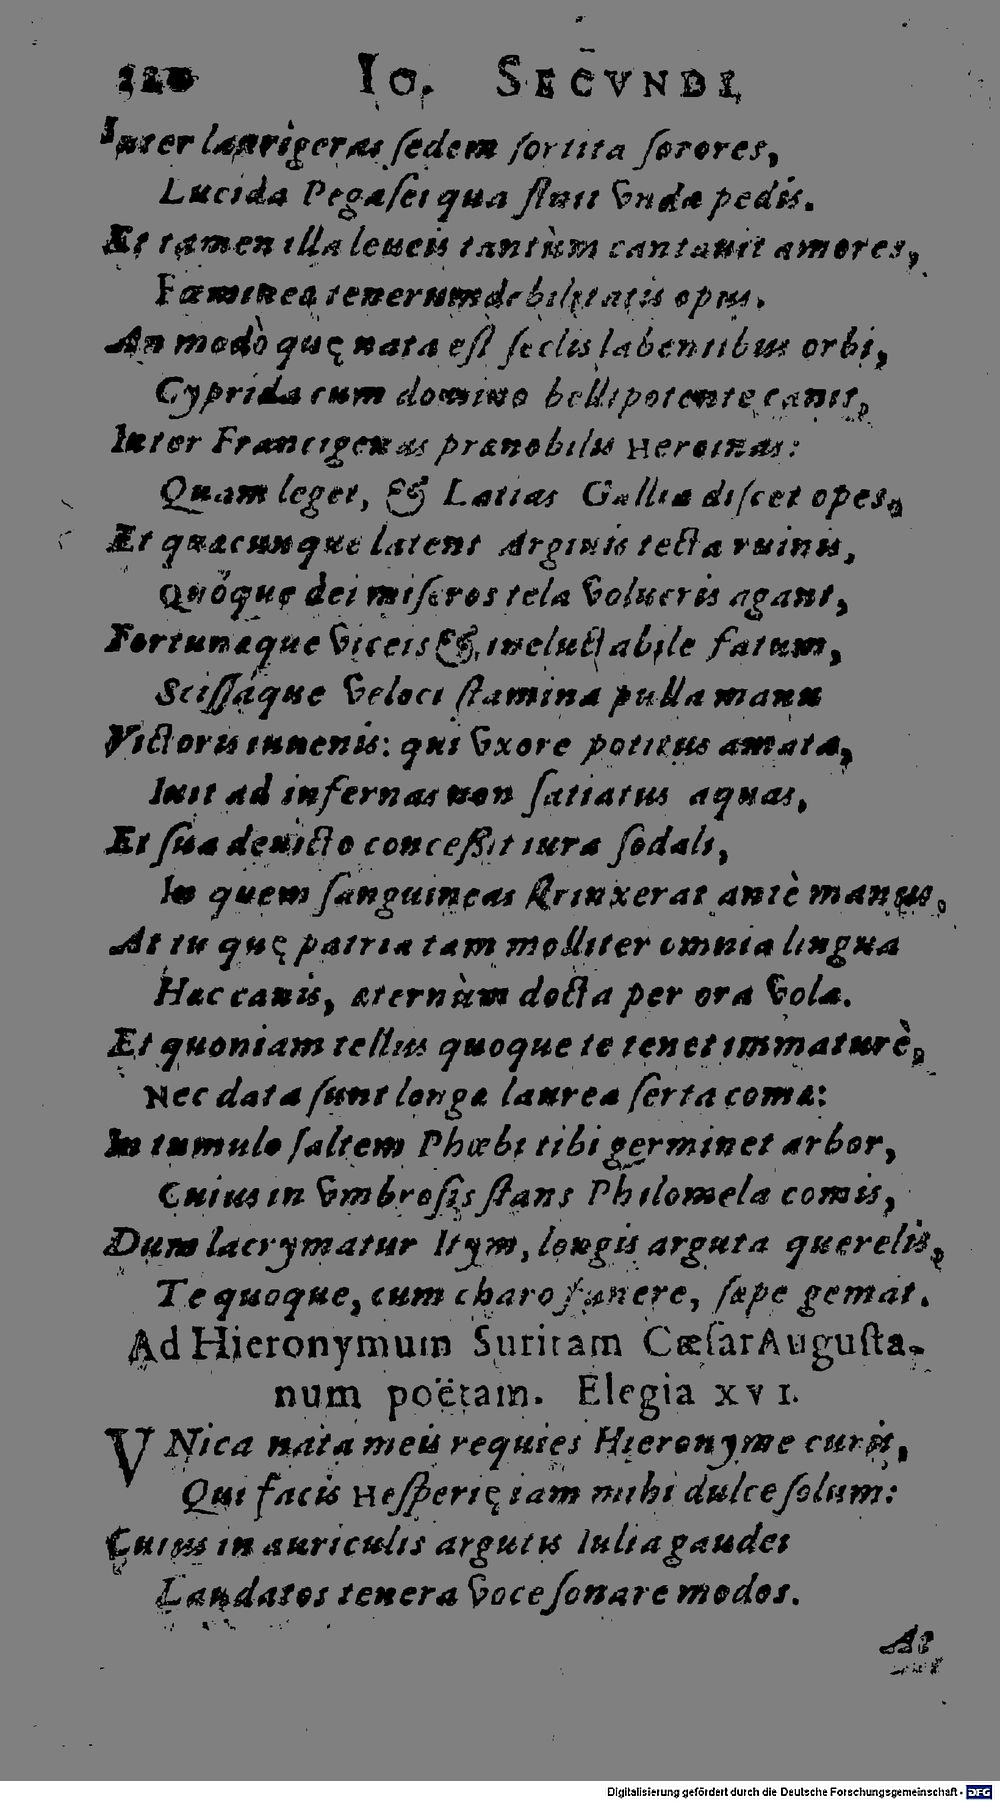 120 Io. SECVNDI
Inter laurigeras ſedem ſortita ſorores,
Lucida Pegaſei qua fluit vnda pedis.
Et tamen illa leueis tantùm cantauit amores,
Fœminea tenerum debilitatis opus.
An modò quę nata eſt ſeclis labentibus orbi,
Cyprida cum domino bellipotente canit,
Inter Francigenas prænobilis Heroinas:
Quam leget, & Latias Gallia diſcet opes,
Et quæcunque latent Argiuis tecta ruinis,
Quóque dei miſeros tela volucris agant,
Fortunæque viceis & ineluctabile fatum,
Sciſſáque veloci ſtamina pulla manu
Victoris iuuenis: qui vxore potitus amata,
Iuit ad infernas non ſatiatus aquas,
Et ſua deuicto conceßit iura ſodali,
In quem ſanguineas ſtrinxerat antè manus.
At tu quę patria tam molliter omnia lingua
Hæc canis, æternùm docta per ora vola.
Et quoniam tellus quoque te tenet immaturè,
Nec data ſunt longæ laurea ſerta comæ:
In tumulo ſaltem Phœbi tibi germinet arbor,
Cuius in vmbroſis ſtans Philomela comis,
Dum lacrymatur Ityn, longis arguta querelis,
Te quoque, cum charo funere, ſæpe gemat.
Ad Hieronymum Suritam CæſarAuguſta-
num poëtam. Elegia XVI.
VNica nata meis requies Hieronyme curis,
Qui facis Heſperię iam mihi dulce ſolum:
Cuius in auriculis argutis Iulia gaudet
Laudatos tenera voce ſonare modos.
At
Digitalisierung gefördert durch die Deutsche Forschungsgemeinschaft - DFG